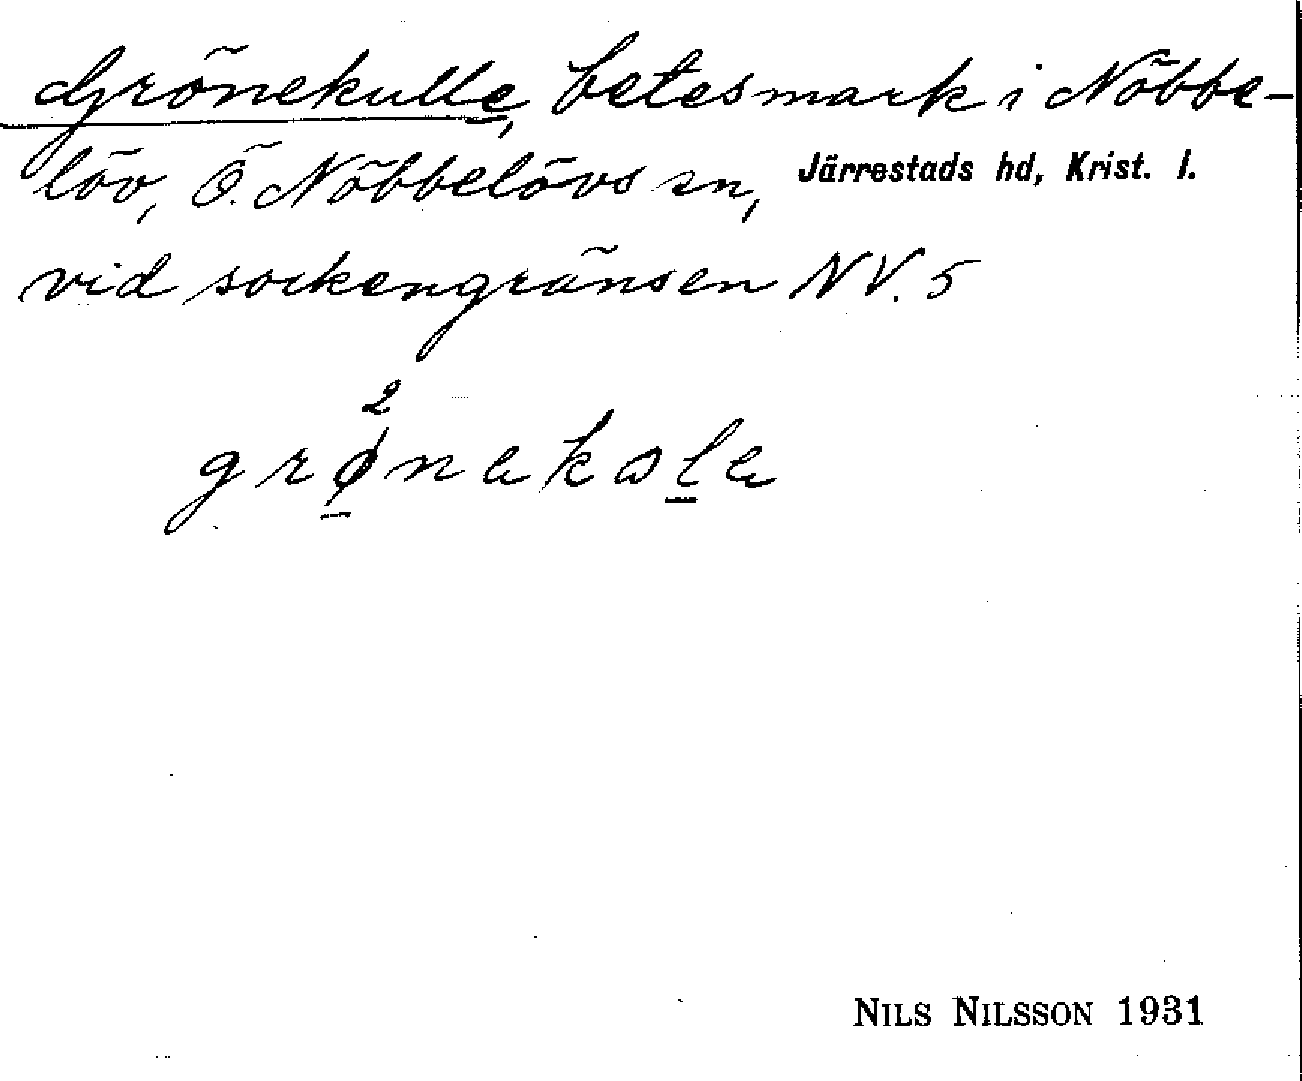 Grönekulle, betesmark i Nöbbe-
löv, Ö. Nöbbelövs sn, Järrestads hd, Krist. l.
vid sockengränsen NV. 5
2
grønəkɷlə
NILS NILSSON 1931